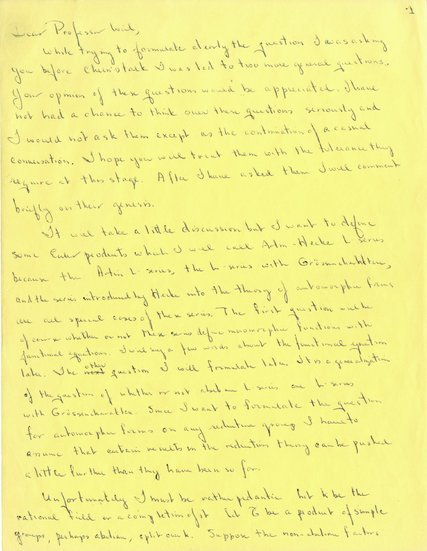 1
Dear Professor Weil,
While trying to formulate clearly the question I was asking
you before Chern's talk I was led to two more general questions.
Your opinion of these questions would be appreciated. I have
not had a chance to think over these questions seriously and
I would not ask them except as the continuation of a casual
conversation. I hope you will treat them with the tolerance they
require at this stage. After I have asked them I will comment
briefly on their genesis.
It will take a little discussion but I want to define
some Euler products which I will call Artin-Hecke L-series
because the Artin L-series, the L-series with Grössencharakteren,
and the series introduced by Hecke into the theory of automorphic forms
are all special cases of these series. The first question will be
of course whether or not these series define meromorphic functions with
functional equations. I will say a few words about the functional equation
later. The other question I will formulate later. It is a generalization
of the question of whether or not abelian L-series are L-series
with Grössencharakteren. Since I want to formulate the question
for automorphic forms on any reductive group I have to
assume that certain results in the reduction theory can be pushed
a little further than they have been so far.
Unfortunately I must be rather pedantic. Let k be the
rational field or a completion of it. Let G be a product of simple
groups, perhaps abelian, split over k. Suppose the non-abelian factors